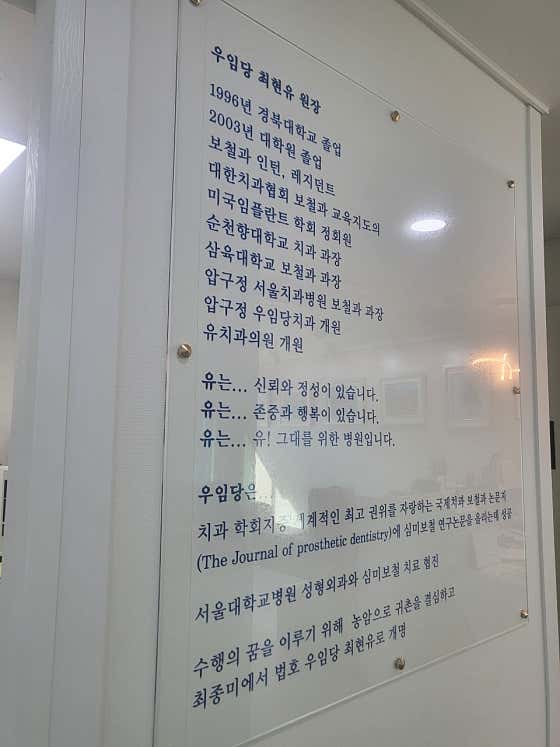 우임당 최현유 원장
1996년 경북대학교 졸업
2003년 대학원 졸업
보철과 인턴, 레지던트
대한치과협회 보철과 교육지도의
미국임플란트 학회 정회원
순천향대학교 치과 과장
삼육대학교 보철과 과장
압구정 서울치과병원 보철과 과장
압구정 우임당치과 개원
유치과의원 개원
유는... 신뢰와 정성이 있습니다.
유는... 존중과 행복이 있습니다.
유는... 유! 그대를 위한 병원입니다.
우임당은...
치과 학회지중 세계적인 최고 권위를 자랑하는 국제치과 보철과 논문지
(The Journal of prosthetic dentistry)에 심미보철 연구논문을 올리는데 성공
서울대학교병원 성형외과와 심미보철 치료 협진
수행의 꿈을 이루기 위해 농암으로 귀촌을 결심하고
최종미에서 법호 우임당 최현유로 개명